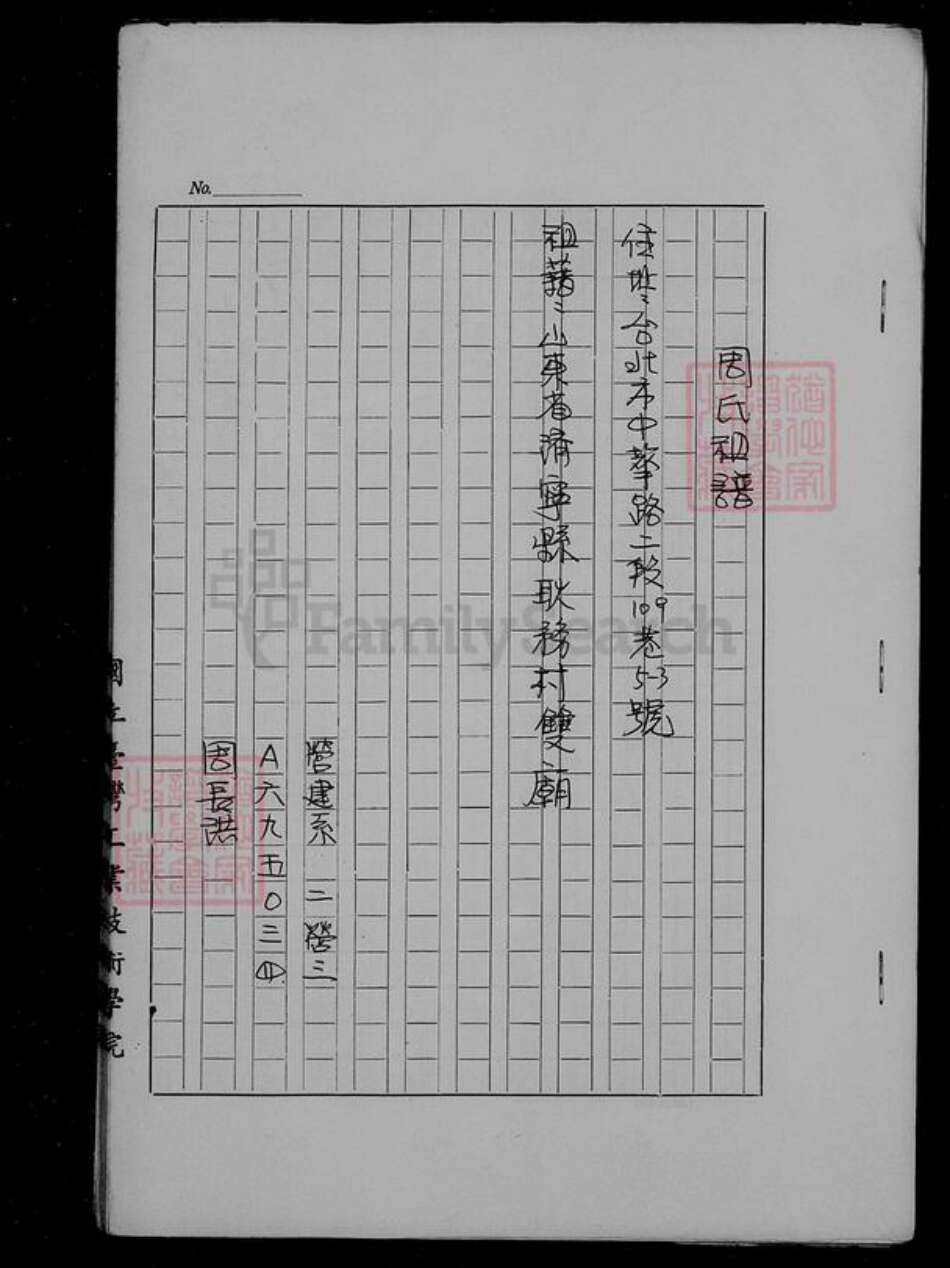 周氏祖譜
住址：台北市中華路二段109巷5-3號
祖籍：山東省濟寧縣耿務村雙廟
營建系 二營三
A六九五0三四
周長洪
國立臺灣工業技術學院
No.
FamilySearch